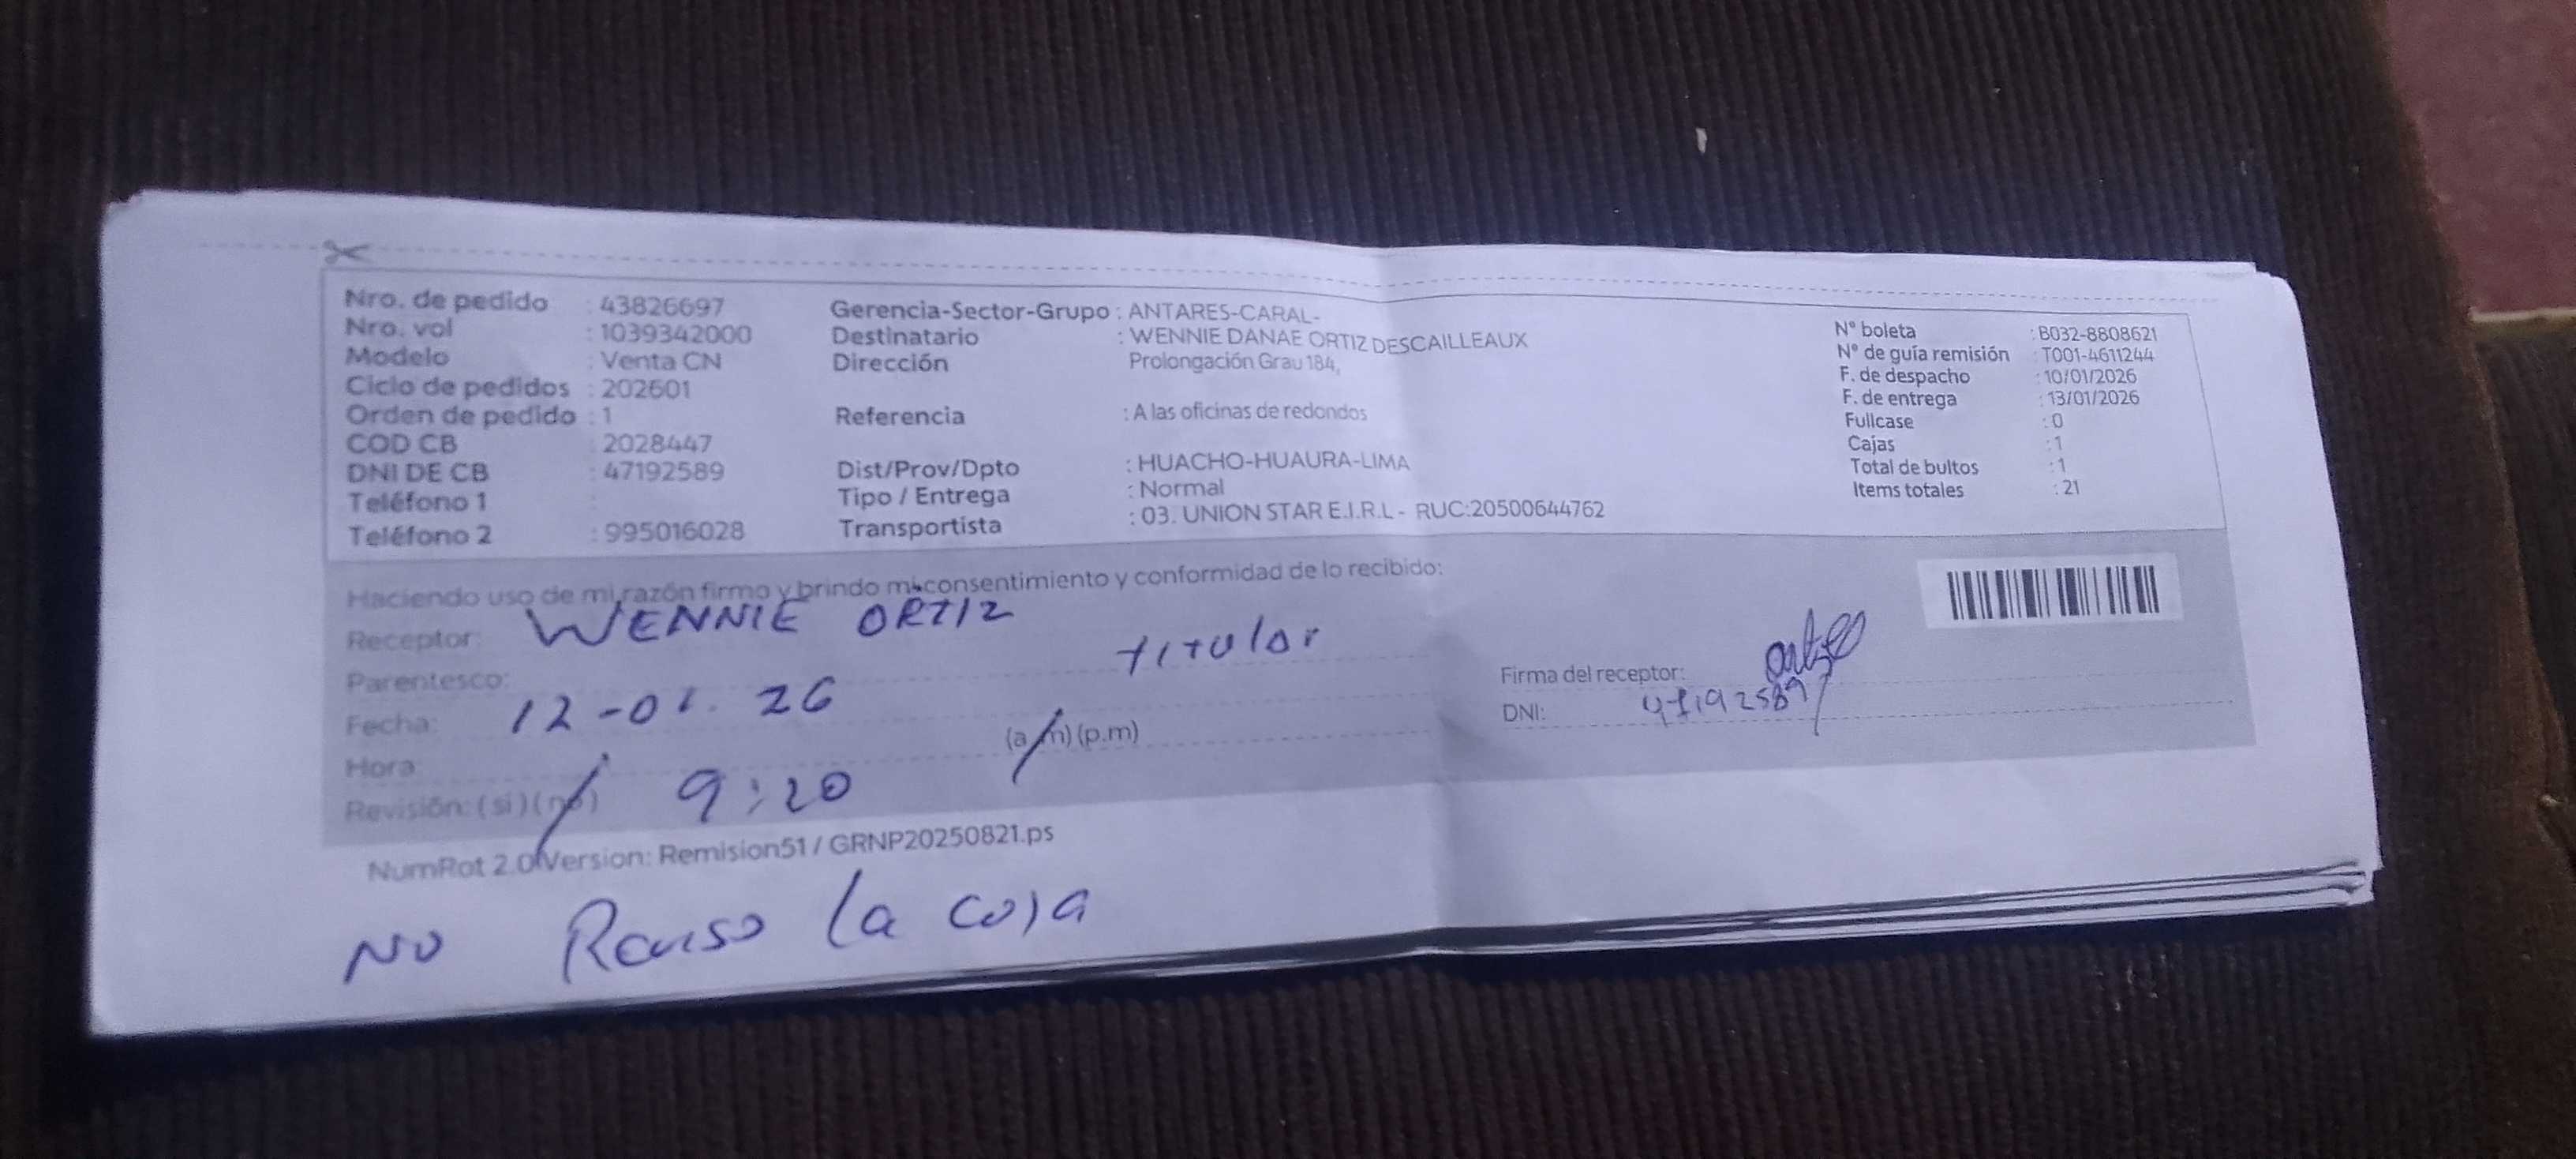 Nro. de pedido : 43826697
Nro. vol : 1039342000
Modelo : Venta CN
Ciclo de pedidos : 202601
Orden de pedido : 1
COD CB : 2028447
DNI DE CB : 47192589
Teléfono 1 :
Teléfono 2 : 995016028
Gerencia-Sector-Grupo : ANTARES-CARAL-
Destinatario : WENNIE DANAE ORTIZ DESCAILLEAUX
Dirección Prolongación Grau 184,
Referencia : A las oficinas de redondos
Dist/Prov/Dpto : HUACHO-HUAURA-LIMA
Tipo / Entrega : Normal
Transportista : 03. UNION STAR E.I.R.L - RUC:20500644762
N° boleta : B032-8808621
N° de guía remisión : T001-4611244
F. de despacho : 10/01/2026
F. de entrega : 13/01/2026
Fullcase : 0
Cajas : 1
Total de bultos : 1
Items totales : 21
Haciendo uso de mi razón firmo y brindo mi consentimiento y conformidad de lo recibido:
Receptor: WENNIE ORTIZ
Parentesco: titular
Fecha: 12-01.26
Hora: 9:20 (a.m) (p.m)
Revisión: (si) (no)
Firma del receptor:
DNI: 47192589
NumRot 2.0 Version: Remision51 / GRNP20250821.ps
NO Reviso la caja